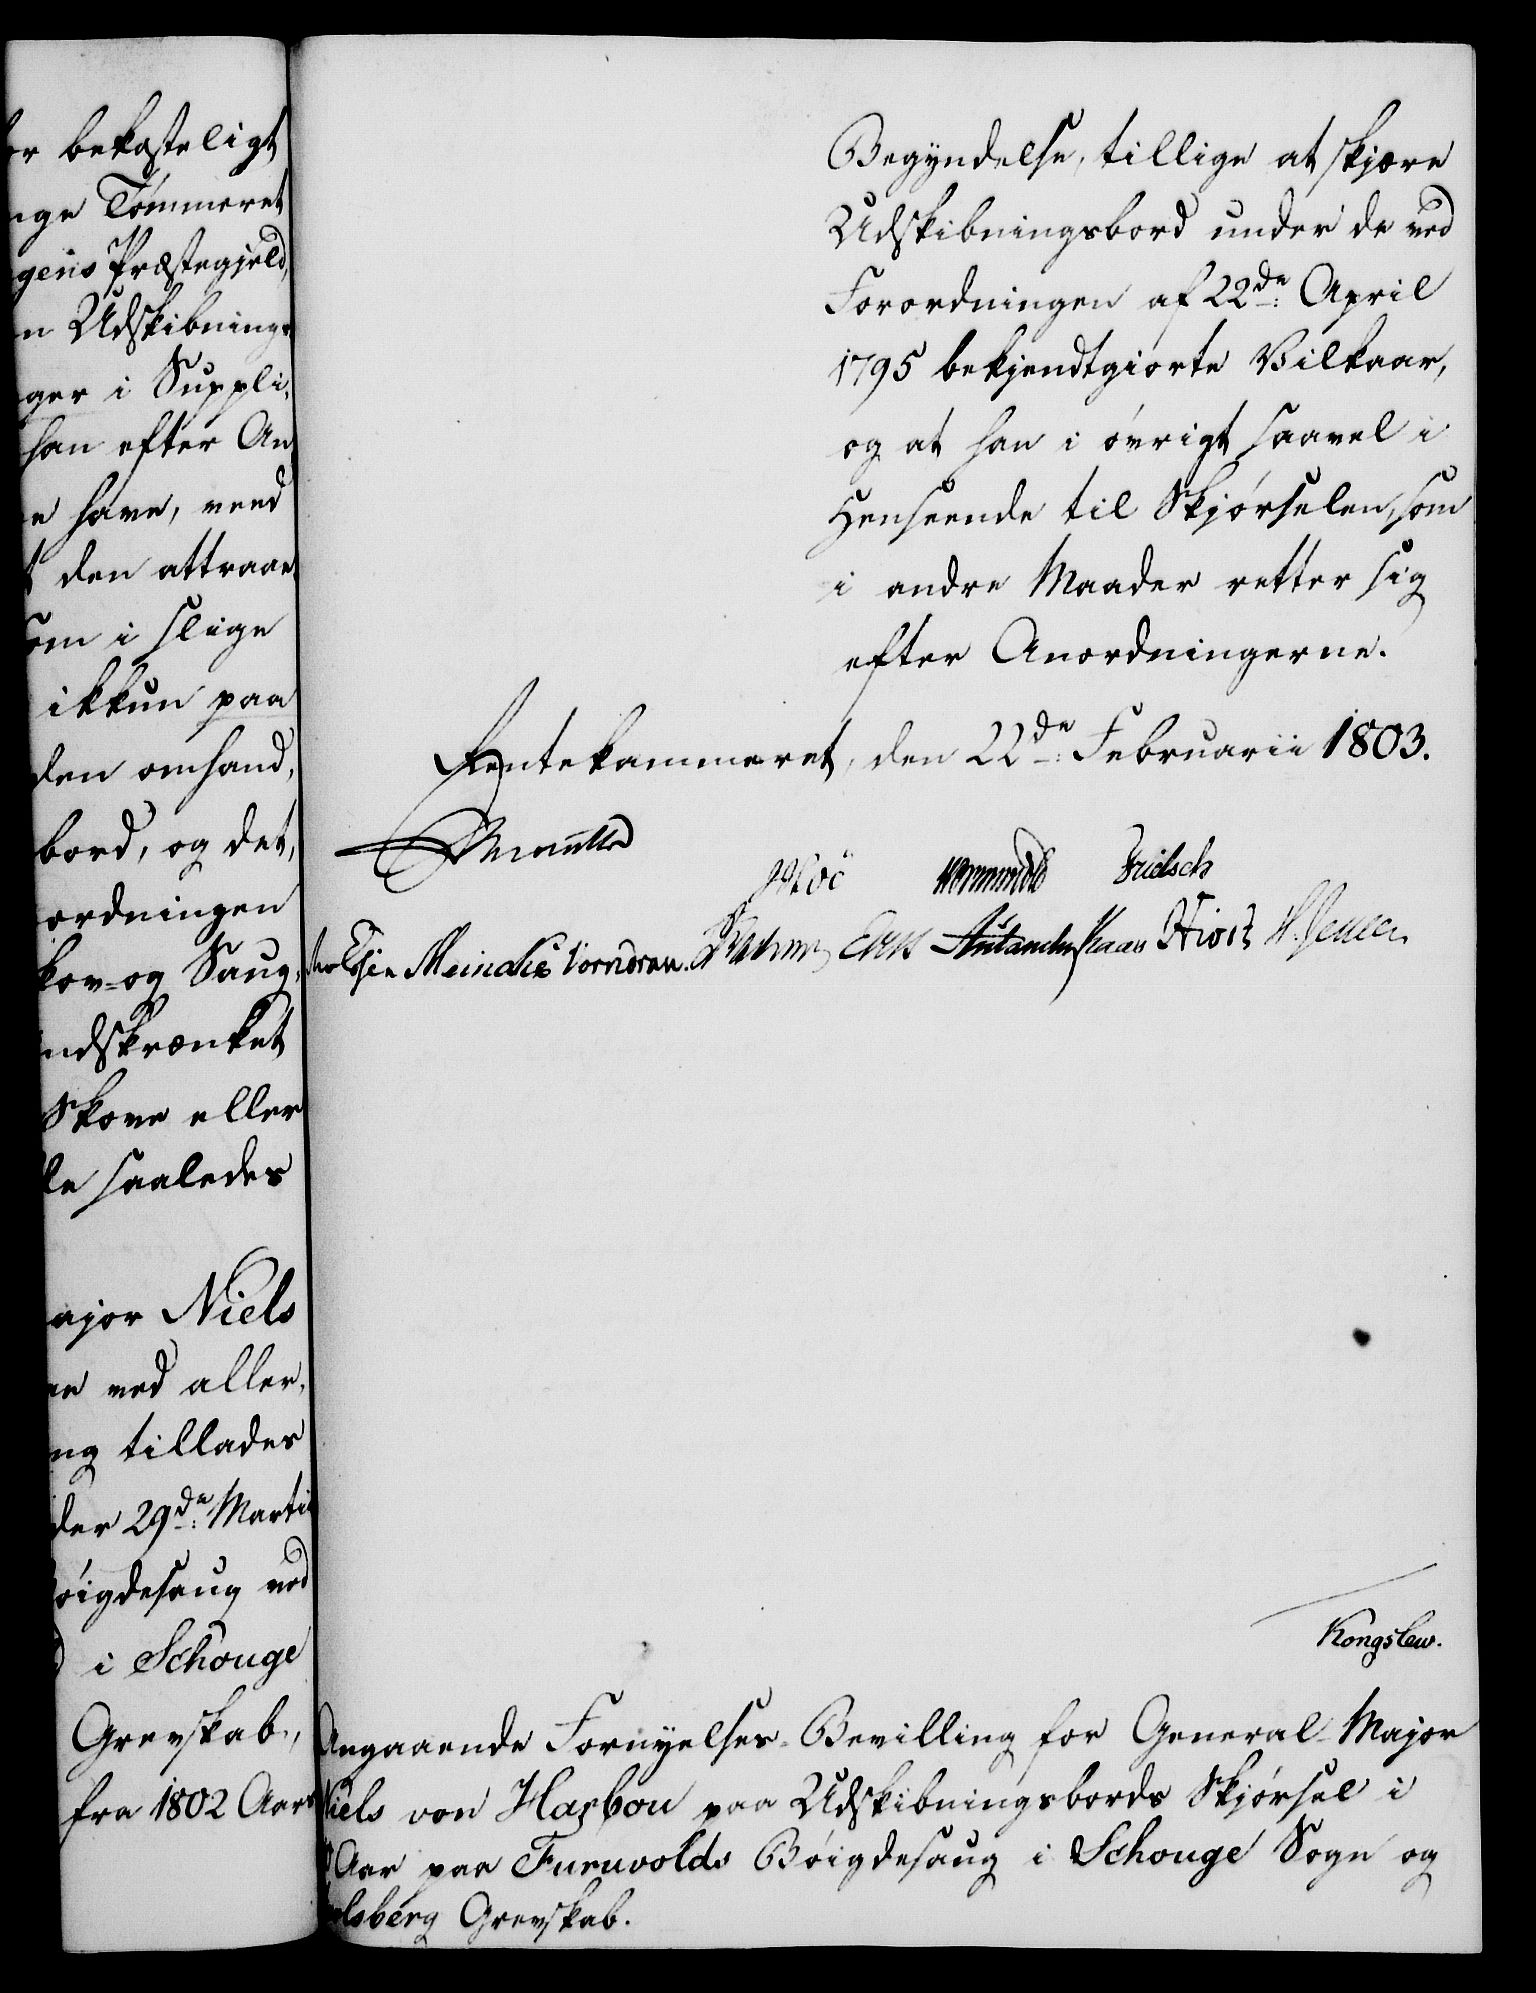 bekosteligt
Tømmeret
Præstegjeld,
Udskibnings
i Suppli,
han efter An
have, med
den attraae
om i slige
ikkun paa
den omhand,
bord, og det,
ordningen
og Saug,
ndskrænket
Skove eller
saaledes
ajor Niels
ved aller,
ng tillades
der 29de: Martii
øigdesaug ved
i Schouge
Grevskab,
fra 1802 Aars
Begyndelse, tillige at skjære
Udskibningsbord under de ved
Forordningen af 22de: April
1795 bekjendtgiorte Vilkaar,
og at han i øvrigt saavel i
Henseende til Skjørselen, som
i andre Maader retter sig
efter Anordningerne.
Rentekammeret, den 22de: Februarii 1803.
Wormskiold
Meincke Vorndran. Kaas Hiort H. Jensen
Kongslew.
Angaaende Fornyelses-Bevilling for General-Major
Niels von Harbou paa Udskibningsbords Skjørsel i
Aar paa Furuvolds Bøigdesaug i Schouge Sogn og
lsberg Grevskab.